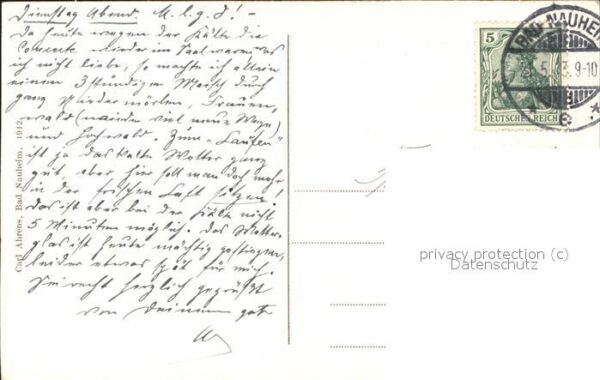 Dienstag Abend. M. l. g. J! –
Da heute wegen der Kälte die
Concerte wieder im Saal waren was
ich nicht liebe, so machte ich allein
einen 3 stündigen Marsch durch
ganz
wald (wieder viel neue Wege)
und Hochwald. Zum "Laufen"
ist ja das kalte Wetter ganz
gut, aber hier soll man doch mehr
in der frischen Luft sitzen!
Das ist aber bei der Kälte nicht
5 Minuten möglich. Das Wetter-
glas ist heute mächtig gestiegen,
leider etwas spät für mich.
Sei recht herzlich gegrüßt
von Deinem
Carl Ahrens, Bad Nauheim. 1912.
5 5
DEUTSCHES REICH
BAD-NAUHEIM
9-10
privacy protection (c)
Datenschutz